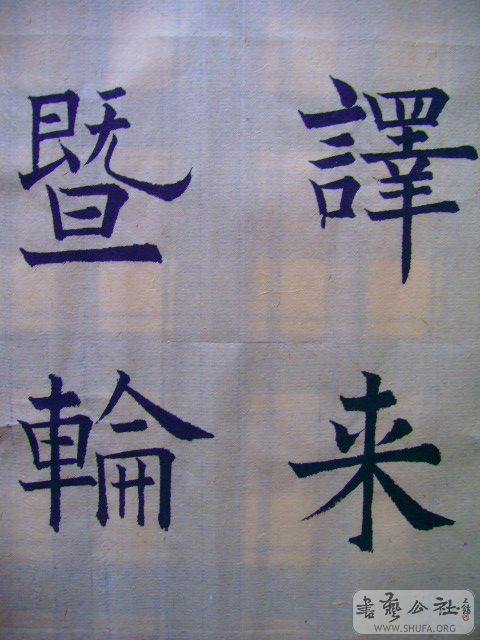 譯来
暨輪
書藝公社
WWW.SHUFA.ORG